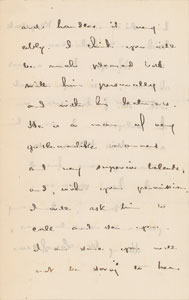 and handles it very
ably. I think you will
be much pleased both
with him personally
and with his lectures.
He is a man of very
gentlemanlike manners
and very superior talents,
and, with your permission,
I will ask him to
call and see you.
I am sure you will
not be sorry to hear